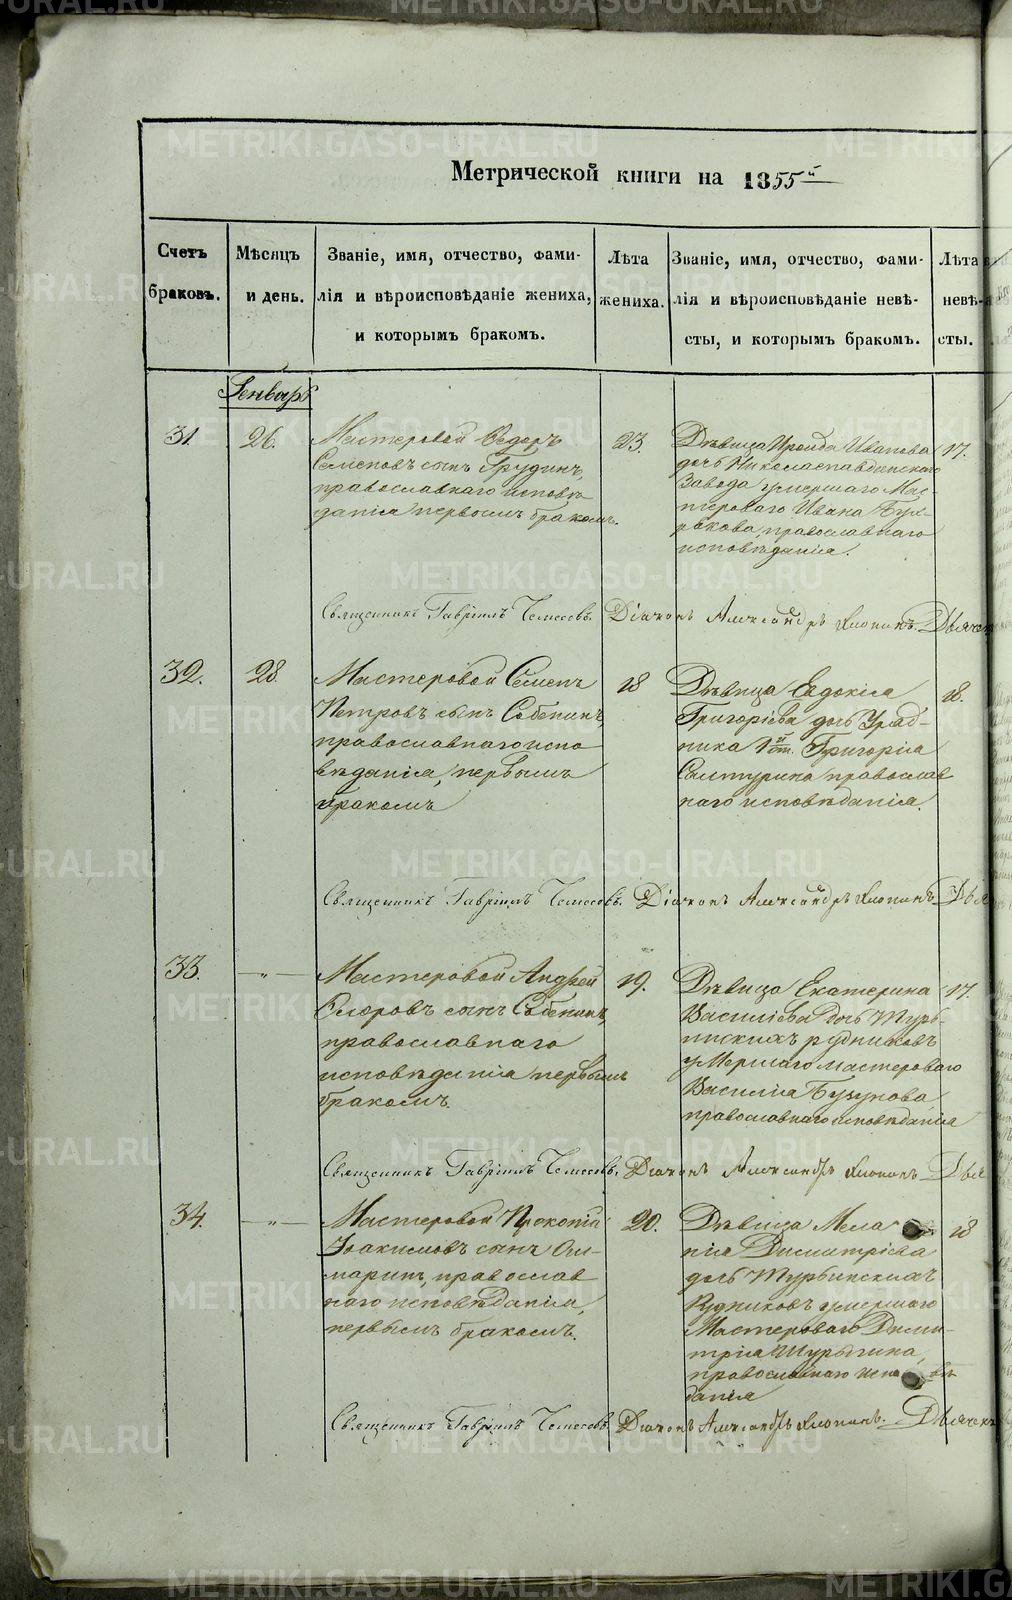 Метрической книги на 1855й
Счетъ браковъ.
Мѣсяцъ и день.
Званіе, имя, отчество, фами-
лія и вѣроисповѣданіе жениха,
и которымъ бракомъ.
Лѣта жениха.
Званіе, имя, отчество, фами-
лія и вѣроисповѣданіе невѣ-
сты, и которымъ бракомъ.
Лѣта
невѣ-
сты.
Генварь
31.
26.
Мастеровой Ѳедоръ
Семеновъ сынъ Грудинъ,
православнаго исповѣ
данія первымъ бракомъ.
23.
Дѣвица Ироида Иванова
дочь Николаепавдинского
Завода умершаго Мас-
тероваго Ивана
православнаго
исповѣданія.
17.
Священникъ Гавріилъ Діаконъ Александръ Хлопинъ. Дьячекъ
32.
28.
Мастеровой Семенъ
Петровъ сынъ Собенинъ
православнаго испо
вѣданія, первымъ
бракомъ
18
Дѣвица Евдокія
Григоріева дочь Уряд-
ника 1й ст. Григорія
православ
наго исповѣданія.
18.
Священникъ Гавріилъ Діаконъ Александръ Хлопинъ. Дья
33.
—„—
Мастеровой Андрей
сынъ Собенинъ,
православнаго
исповѣданія первымъ
бракомъ.
19.
Дѣвица Екатерина
Василіева дочь Турь-
инскихъ рудниковъ
умершаго мастероваго
Василія
православнаго исповѣданія
17.
Священникъ Гавріилъ Діаконъ Александръ Хлопинъ Дья
34.
—„—
Мастеровой Прокопій
Іоакимовъ сынъ Ош-
маринъ, православ
наго исповѣданія,
первымъ бракомъ.
20.
Дѣвица Мела
нія Димитріева
дочь Турьинскихъ
Рудниковъ умершаго
Мастероваго Дими-
трія
православнаго испо вѣ
данія
18
Священникъ Гавріилъ Діаконъ Александръ Хлопинъ. Дьячекъ
METRIKI.GASO-URAL.RU